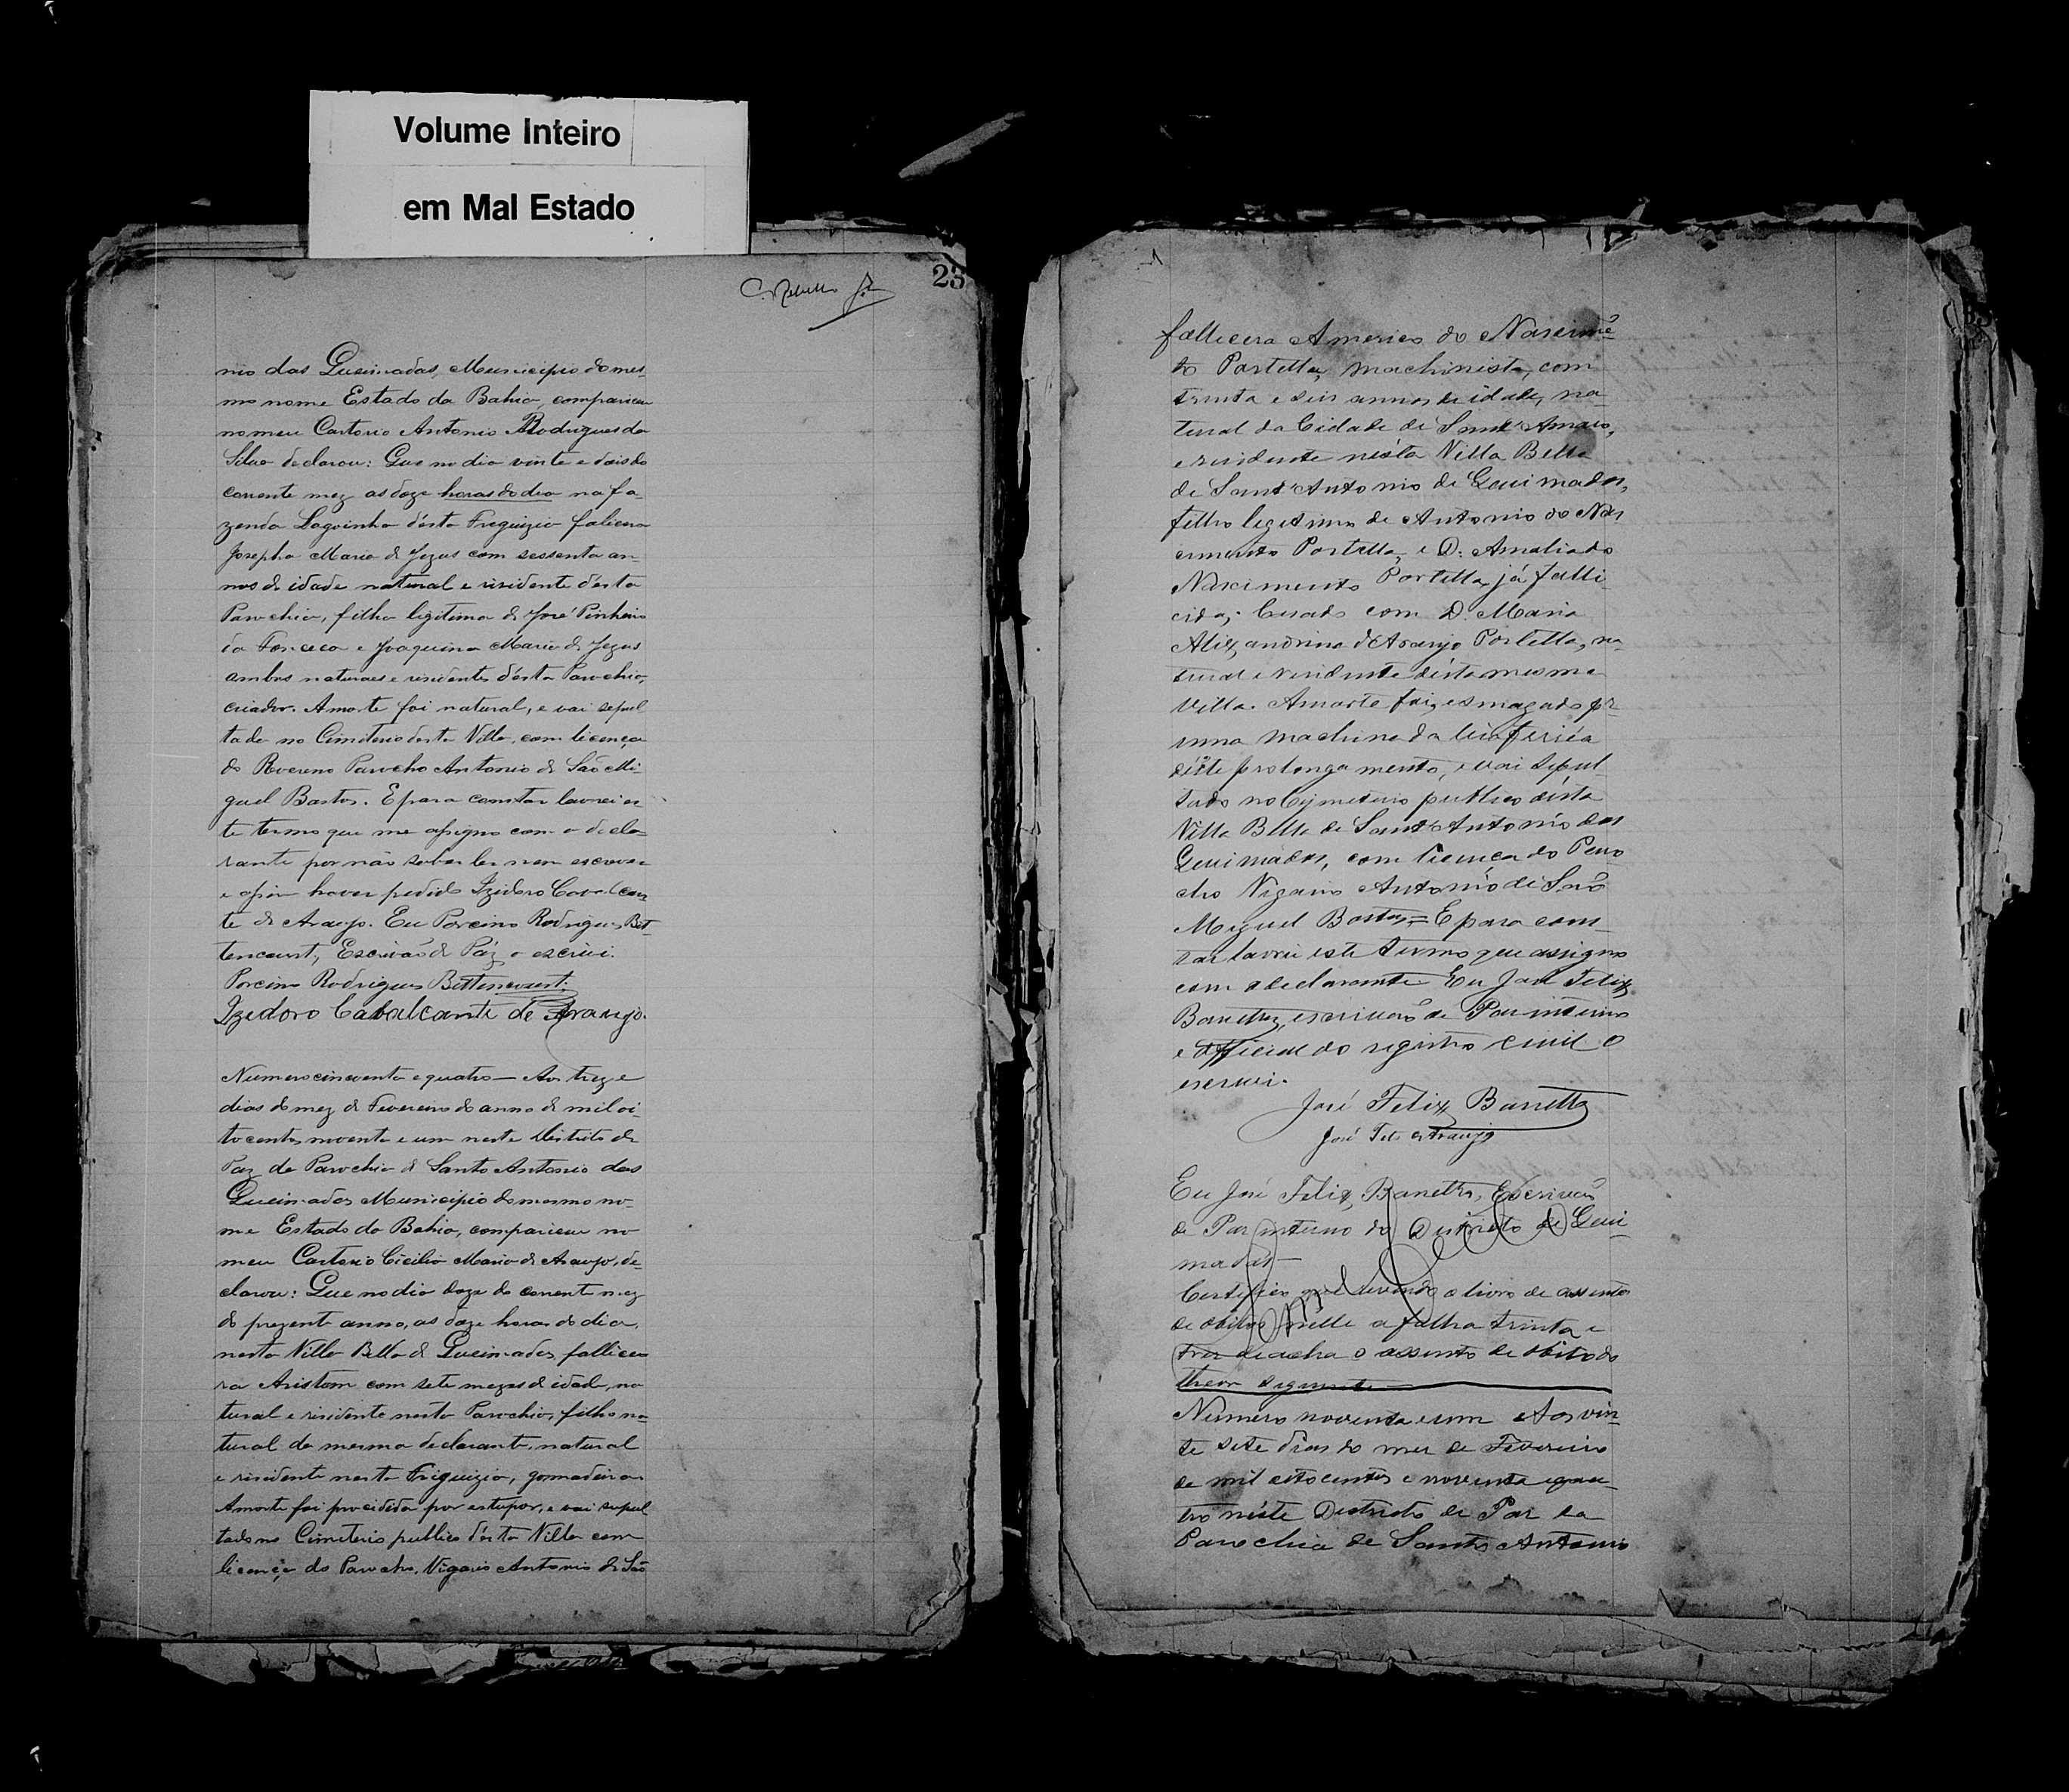 Volume Inteiro
em Mal Estado
23
nio das Queimadas, Municipio do mes-
mo nome Estado da Bahia, compareceu
no meu Cartorio Antonio Rodrigues da
Silva declarou: Que no dia vinte e dois do
corrente mez as doze horas do dia na fa-
zenda Lagoinha désta Freguizia falicera
Josepha Maria de Jezus com sessenta an-
nos de idade natural e residente désta
Parochia, filha legitima de José Pinheiro
da Fonceca e Joaquina Maria de Jezus
ambos naturaes e residentes désta Parochia,
criador. A morte foi natural, e vai sepul
tada no Cimiterio desta Villa, com licença
do Rvereno Parocho Antonio de São Mi-
guel Bastos. E para constar lavrei es-
te termo que me assigno com o decla-
rante por não saber ler nem escrever
e assim haver pedido Izidoro Cavalcan
te de Araujo. Eu Porcino Rodrigues Bit-
tencourt, Escrivão de Páz o escrivi.
Porcino Rodrigues Bittencourt.
Izedoro Cabalcante de Araujo.
Numero cincoenta e quatro — Aos treze
dias do mez de Fevereiro do anno de mil oi-
tocentos noventa e um neste Districto de
Paz da Parochia de Santo Antonio das
Queimadas Municipio do mesmo no-
me Estado da Bahia, compareceu no
meu Cartorio Cicilia Maria de Araujo, de-
clarou: Que no dia doze do corrente mez
do prezente anno, as doze horas do dia,
nesta Villa Bella de Queimadas, fallice-
ra Aristom com sete mezes de idade, na
tural e residente nesta Parochia, filho na-
tural da mesma declarante, natural
e residente nesta Friguizia, gomadeira.
A morte foi procidida por estupor, e vai sepul
tado no Cimiterio publico désta Villa com
licença do Parocho, Vigario Antonio de São
fallecera Americo do Nascimẽ-
to Portella, machinista, com
trinta e seis annos de idade, na-
tural da Cidade de Sant'Amaro,
e residente nésta Villa Bella
de Sant'Antonio de Queimadas,
filho legitimo de Antonio do Nas
cimento Portella, e D. Amalia do
Nascimento Portella, já falli
cida; Casado com D. Maria
Alixandrina d'Araujo Portella, na-
tural e residente désta mesma
Villa. A morte foi, esmagado pr
uma machina da
déste prolongamento, e vai sepul-
tado no Cymeterio publico désta
Villa Bella de Sant'Antonio das
Queimadas, com licença do Paro
cho Vigario Antonio de São
Miguel Bastos = E para cons-
tar lavrei este termo que assigno
com o declarante Eu José Felix
Barretto, escrivão de Paz interino
e official do registro civil o
escrevi.
José Felix Barretto
José Araujo
Eu José Felix Barretto, Escrivão
de Paz interino do Districto de Quei-
madas —
Certifico que revendo o livro de assentos
de obitos nelle a folha trinta e
tres se acha o assento de obito do
theor seguinte
Numero noventa e um Aos vin-
te sete dias do mez de Fevereiro
de mil oitocentos e noventa e qua-
tro néste Districto de Paz da
Parochia de Santo Antonio